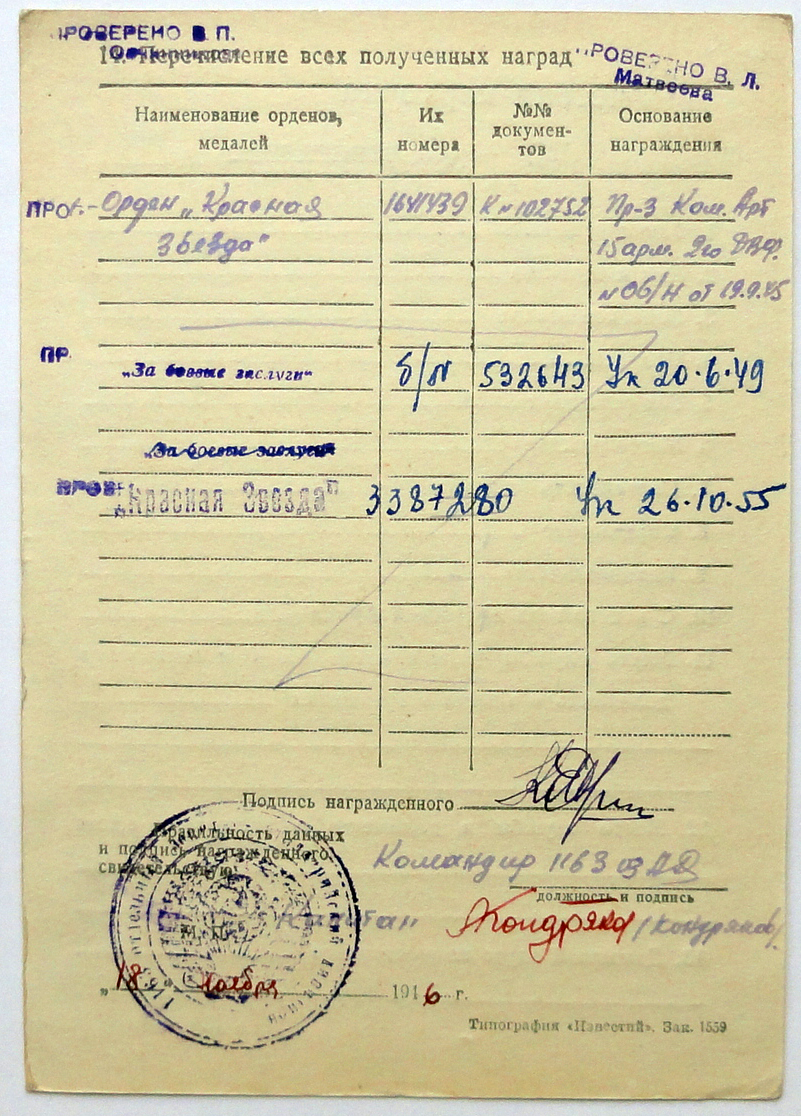 ПРОВЕРЕНО В. П.
14. Перечисление всех полученных наград
РОВЕРЕНО В. Л.
Матвеева
Наименование орденов, медалей
Их номера
№№ докумен-тов
Основание награждения
ПРОВ.- Орден „Красная 1641439 К № 102752 Пр-з Ком. Арт
Звезда" 15 арм. 2го ДВФ.
№ Об/Н от 19.9.45
ПР. „За боевые заслуги" б/№ 532643 Ук 20.6.49
„За боевые заслуги"
ПРОВ. „Красная Звезда" 3387280 Ук 26.10.55
Подпись награжденного
Правильность данных
и подпись награжденного
свидетельствую:
Командир 1163 оз АД
должность и подпись
М. П.
Капитан Кондряков /Кондряков/
„18" Ноября 1946 г.
Типография «Известий». Зак. 1559